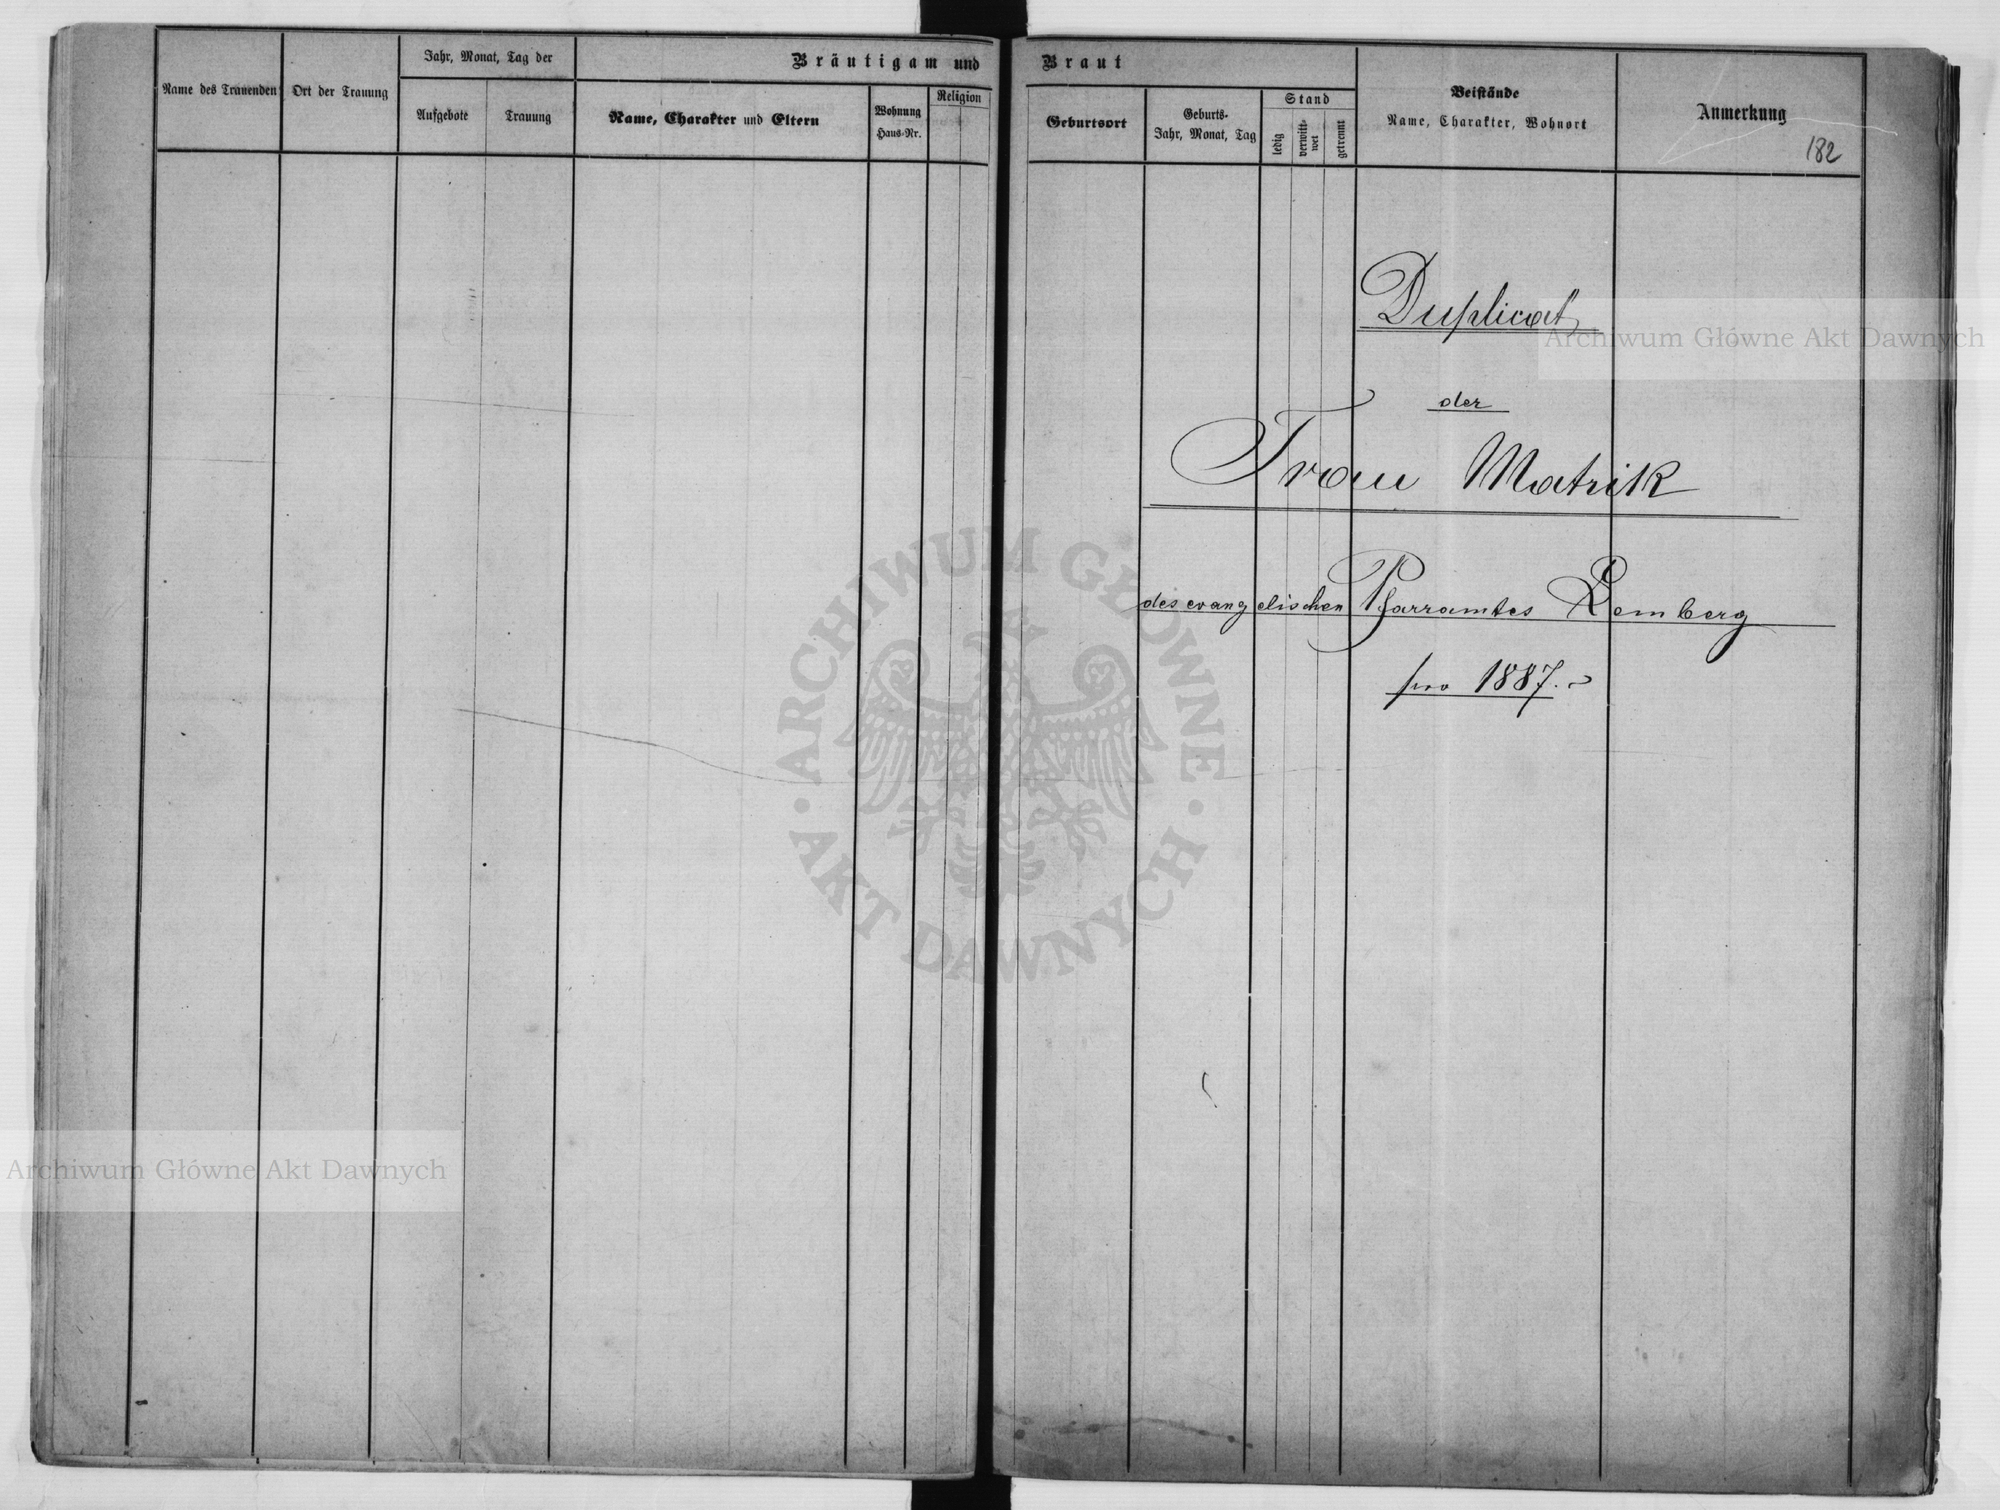 Bräutigam und Braut
Name des Trauenden
Ort der Trauung
Jahr, Monat, Tag der
Aufgebote
Trauung
Name, Charakter und Eltern
Wohnung
Haus-Nr.
Religion
Geburtsort
Geburts-
Jahr, Monat, Tag
Stand
ledig
verwitt-
wet
getrennt
Beistände
Name, Charakter, Wohnort
Anmerkung
182
Duplicat
der
Trau Matrik
des evangelischen Pfarramtes Lemberg
pro 1887.
Archiwum Główne Akt Dawnych
ARCHIWUM GŁÓWNE · AKT DAWNYCH ·
Archiwum Główne Akt Dawnych